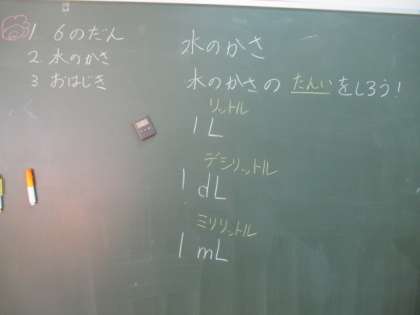 1 6のだん
2 水のかさ
3 おはじき
水のかさ
水のかさの たんいをしろう!
リットル
1L
デシリットル
1dL
ミリリットル
1mL